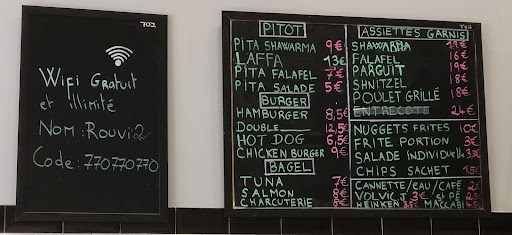 702
Wifi Gratuit
et illimité
Nom: Rouvi2
Code: 770770770
PITOT
PITA SHAWARMA 9€
LAFFA 13€
PITA FALAFEL 7€
PITA SALADE 5€
BURGER
HAMBURGER 8,5€
DOUBLE 12,5€
HOT DOG 6,5€
CHICKEN BURGER 9€
BAGEL
TUNA 7€
SALMON 8€
CHARCUTERIE 8€
ASSIETTES GARNIS
SHAWARMA 19€
FALAFEL 16€
PARGUIT 19€
SHNITZEL 18€
POULET GRILLÉ 18€
ENTRECOTE 24€
NUGGETS FRITES 10€
FRITE PORTION 3€
SALADE INDIVIDUELLE 3,5€
CHIPS SACHET 1,5€
CANNETTE/EAU/CAFÉ 2€
VOLVIC J 3€
HEINKEN 3.5€ MACCABI